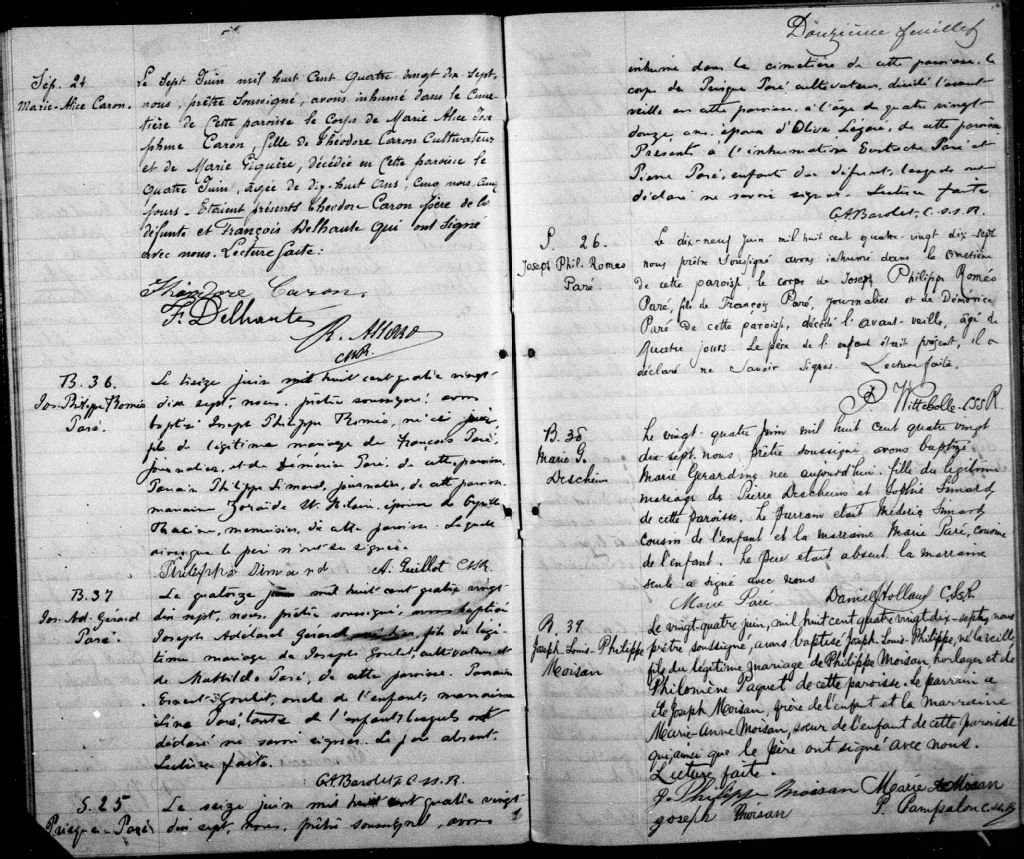 Sép. 24
Marie-Alice Caron.
Le Sept Juin mil huit Cent Quatre vingt dix Sept,
nous, prêtre Soussigné, avons inhumé dans le Cime-
tière de Cette paroisse le Corps de Marie Alice Jose
phine Caron, fille de Théodore Caron Cultivateur
et de Marie Giguère, décédée en Cette paroisse le
Quatre Juin, agée de dix-huit ans, Cinq mois, Cinq
jours. Etaient présents Théodore Caron père de la
défunte et François Delhaute qui ont Signé
avec nous. Lecture faite.
Théodore Caron.
F. Delhaute
CssR.
B. 36.
Jos-Philippe Roméo
Paré.
Le treize juin mil huit cent quatre vingt
dix sept, nous, prêtre soussigné avons
baptisé Joseph Philippe Roméo, né ici
fils de légitime mariage de François Paré,
journalier, et de Démérise Paré, de cette paroisse.
Parrain Philippe Simard, journalier, de cette paroisse
marraine Zoraïde St. Hilaire, épouse de
Racine, menuisier, de cette paroisse. Laquelle
ainsi que le père n'ont su signer.
Philippe Simard A. Guillot CssR.
B. 37
Jos. Ad. Gérard
Paré.
Le quatorze juin mil huit cent quatre vingt
dix sept, nous, prêtre soussigné, avons baptisé
Joseph Adélard Gérard, fils du légi-
time mariage de Joseph Goulet, cultivateur et
de Mathilde Paré, de cette paroisse. Parrain
Ernest Goulet, oncle de l'enfant, marraine
Lina Paré, tante de l'enfant, lesquels ont
déclaré ne savoir signer. Le père absent.
Lecture faite.
G.A. Bardet, C.SS.R.
S. 25
Prisque Paré
Le seize juin mil huit cent quatre vingt
dix sept, nous, prêtre soussigné, avons
Douzième feuillet
inhumé dans le cimetière de cette paroisse, le
corps de Prisque Paré cultivateur, décédé l'avant
veille en cette paroisse, à l'âge de quatre vingt-
douze ans, époux d'Olive Légaré, de cette paroisse
Présents à l'inhumation Eustache Paré et
Pierre Paré, enfants du défunt, lesquels ont
déclaré ne savoir signer. Lecture faite
G.A. Bardet, C.SS.R.
S. 26.
Joseph Phil. Romeo
Paré
Le dix-neuf juin mil huit cent quatre-vingt dix sept
nous prêtre soussigné avons inhumé dans le cimetière
de cette paroisse, le corps de Joseph Philippe Roméo
Paré, fils de François Paré, journalier et de Démérise
Paré de cette paroisse, décédé l'avant-veille, âgé de
quatre jours. Le père de l'enfant était présent, il a
déclaré ne savoir signer. Lecture faite.
Wittebolle CSSR
B. 38
Marie G.
Descheus
Le vingt-quatre juin mil huit cent quatre vingt
dix sept, nous prêtre soussigné, avons baptisé
Marie Gerardine née aujourd'hui. fille du légitime
mariage de Pierre Descheus et Sophie Simard
de cette paroisse. Le parrain etait Médéric Simard
cousin de l'enfant et la marraine Marie Paré, cousine
de l'enfant. Le père etait absent la marraine
seule a signé avec nous
Marie Paré Daniel Holland C.SS.R
B. 39
Joseph Louis-Philippe
Moisan
Le vingt quatre juin, mil huit cent quatre vingt dix-sept, nous
prêtre soussigné, avons baptisé Joseph Louis-Philippe, né la veille
fils du légitime mariage de Philippe Moisan, horloger et de
Philomène Paquet de cette paroisse. Le parrain a
été Joseph Moisan, frère de l'enfant et la marraine
Marie-Anne Moisan, sœur de l'enfant de cette paroisse
qui, ainsi que le père ont signé avec nous.
Lecture faite.
J. Philippe Moisan Marie A Moisan
Joseph Moisan P. Pampalon C.SS.R.